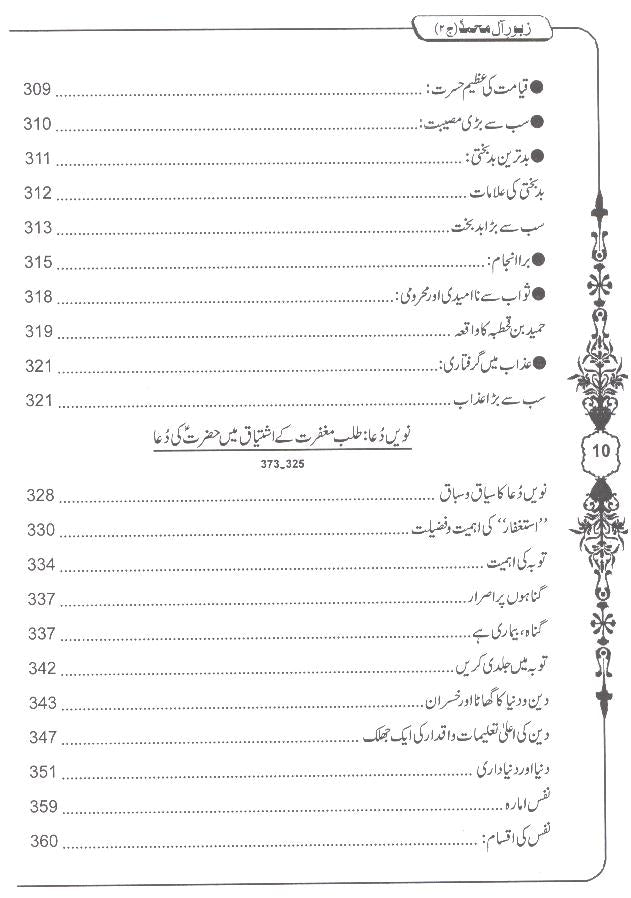 زبور آل محمدؐ (ج ۲)
● قیامت کی عظیم حسرت: 309
● سب سے بڑی مصیبت: 310
● بدترین بدبختی: 311
بدبختی کی علامات 312
سب سے بڑا بدبخت 313
● برا انجام: 315
● ثواب سے ناامیدی اور محرومی: 318
حمید بن قحطبہ کا واقعہ 319
● عذاب میں گرفتاری: 321
سب سے بڑا عذاب 321
نویں دُعا: طلب مغفرت کے اشتیاق میں حضرتؑ کی دُعا
373_325
نویں دُعا کا سیاق و سباق 328
’’استغفار‘‘ کی اہمیت و فضیلت 330
توبہ کی اہمیت 334
گناہوں پر اصرار 337
گناہ، بیماری ہے 337
توبہ میں جلدی کریں 342
دین و دنیا کا گھاٹا اور خسران 343
دین کی اعلیٰ تعلیمات و اقدار کی ایک جھلک 347
دنیا اور دنیا داری 351
نفس امارہ 359
نفس کی اقسام: 360
10